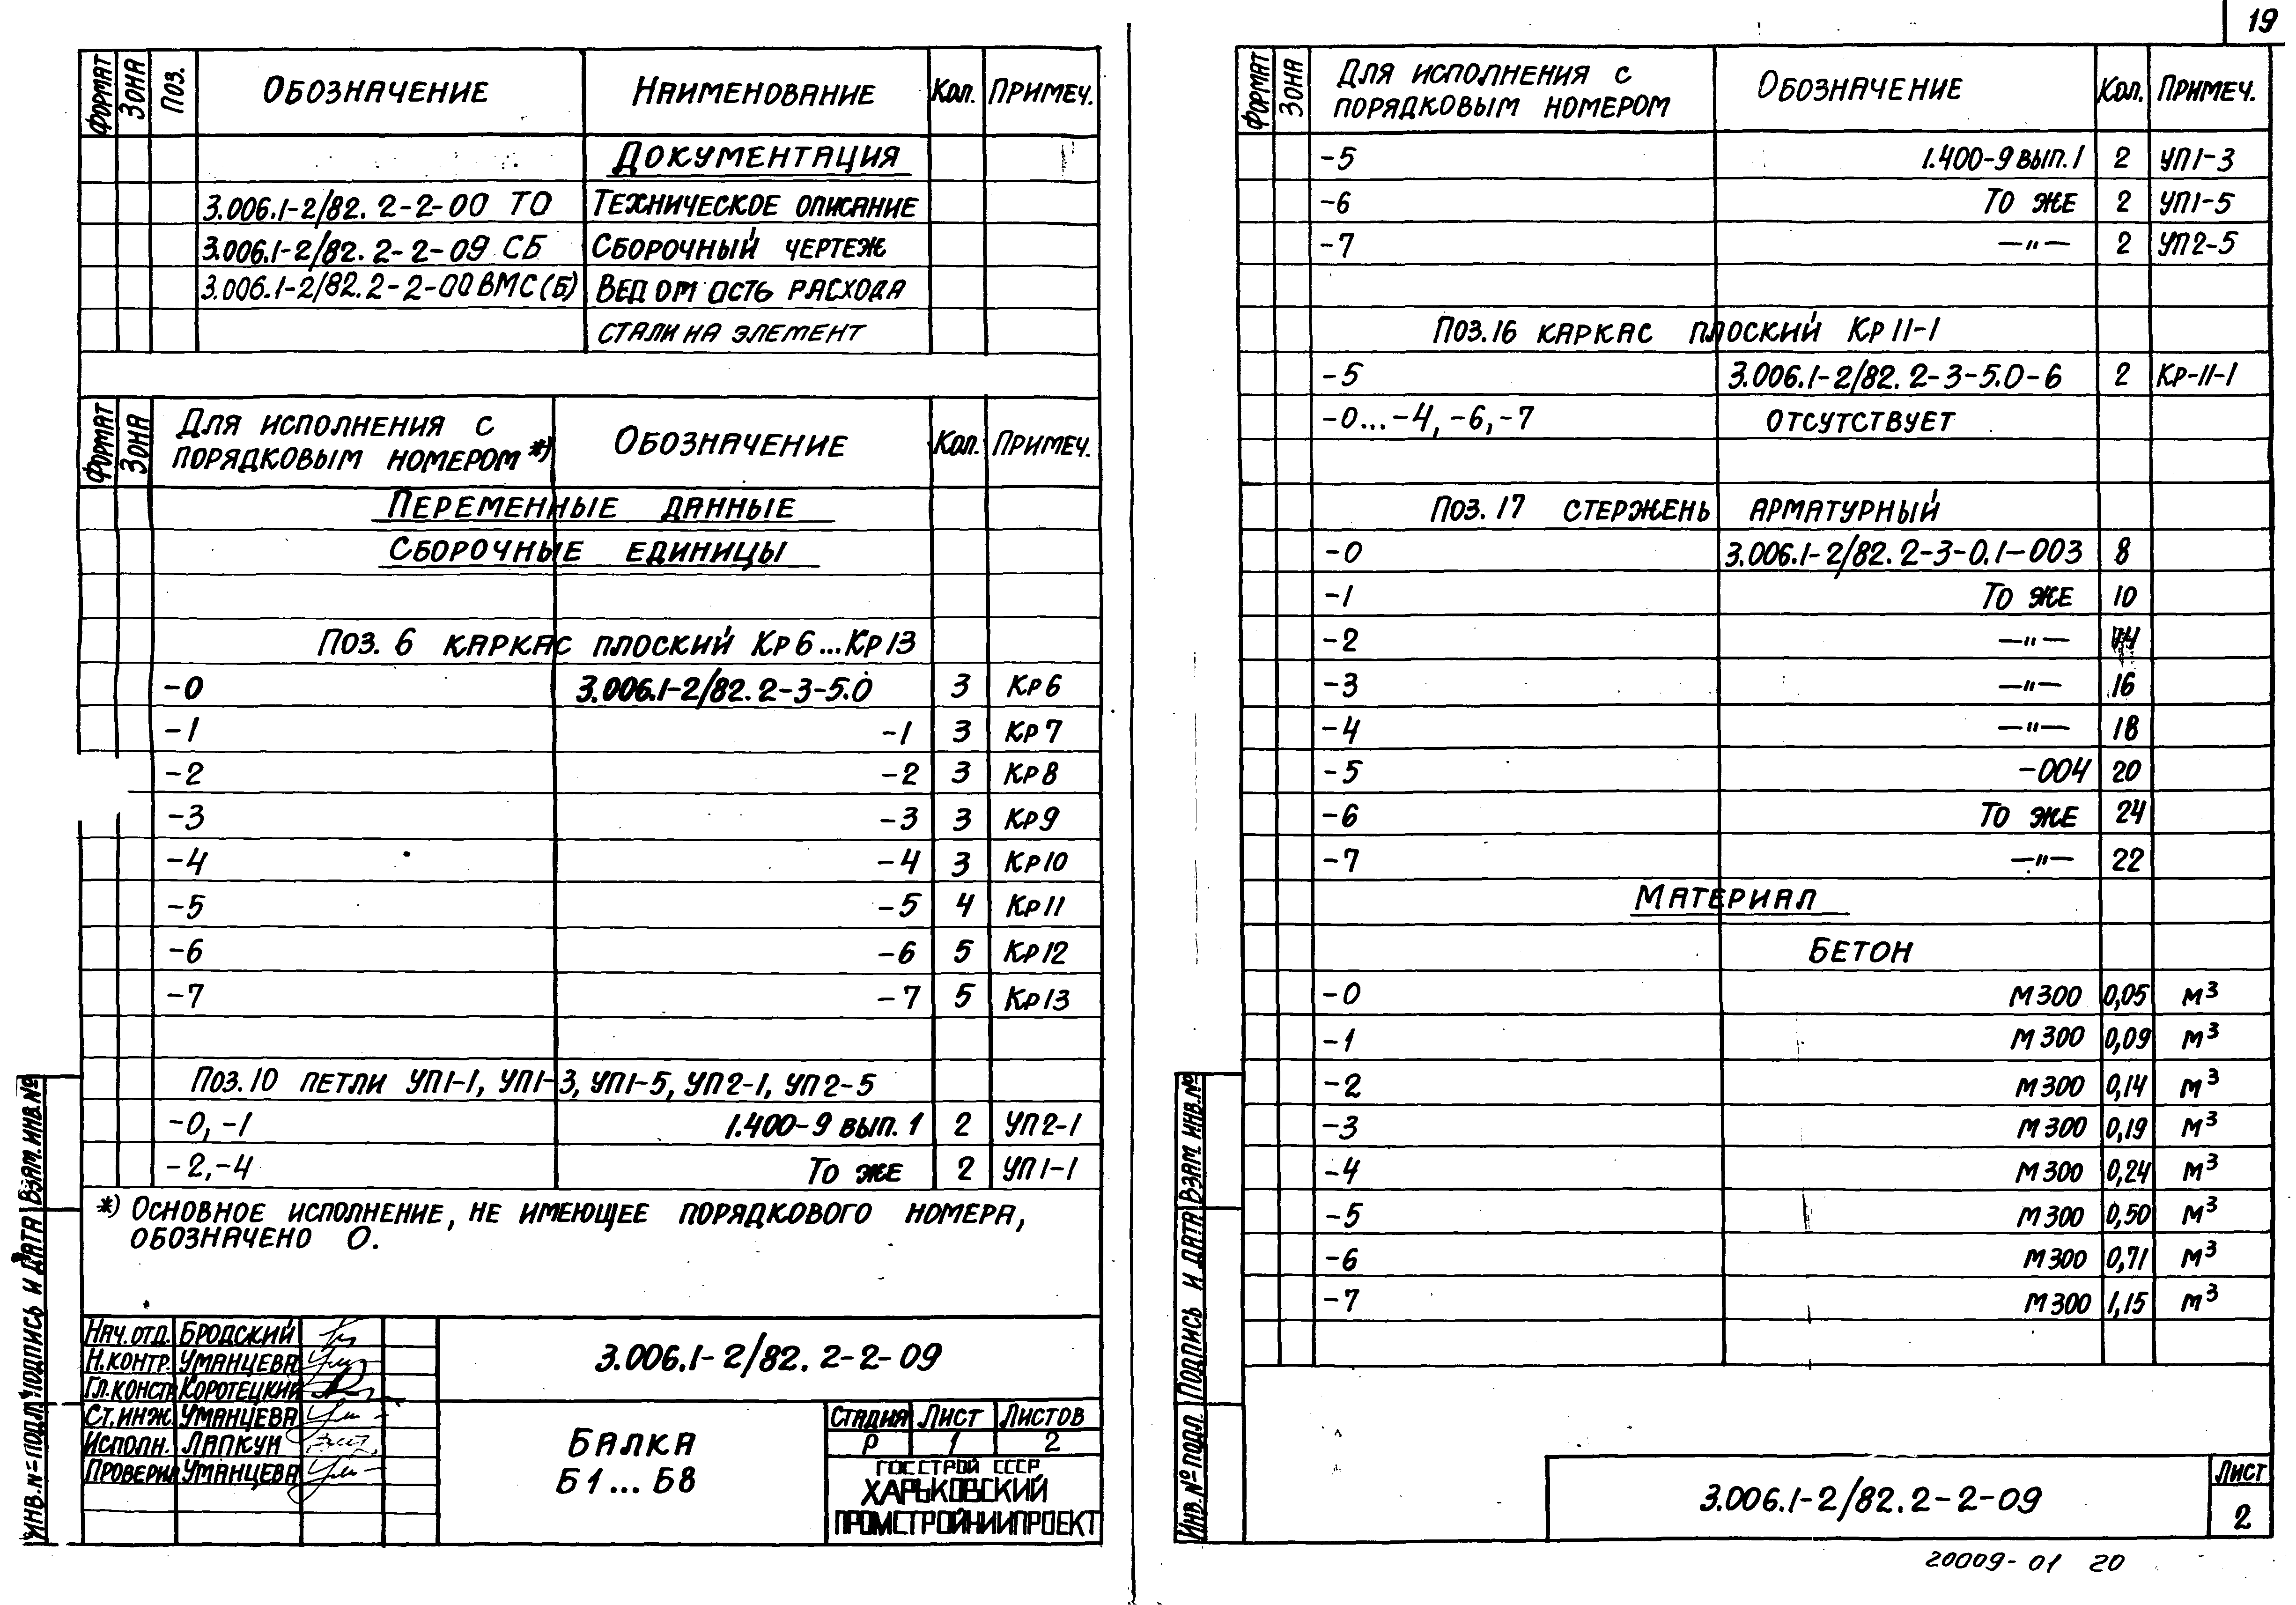 19
ФОРМАТ ЗОНА ПОЗ. ОБОЗНАЧЕНИЕ НАИМЕНОВАНИЕ КОЛ. ПРИМЕЧ.
ДОКУМЕНТАЦИЯ
3.006.1-2/82. 2-2-00 ТО ТЕХНИЧЕСКОЕ ОПИСАНИЕ
3.006.1-2/82. 2-2-09 СБ СБОРОЧНЫЙ ЧЕРТЕЖ
3.006.1-2/82.2-2-00ВМС(Б) ВЕДОМОСТЬ РАСХОДА
СТАЛИ НА ЭЛЕМЕНТ
ФОРМАТ ЗОНА ДЛЯ ИСПОЛНЕНИЯ С ПОРЯДКОВЫМ НОМЕРОМ *) ОБОЗНАЧЕНИЕ КОЛ. ПРИМЕЧ.
ПЕРЕМЕННЫЕ ДАННЫЕ
СБОРОЧНЫЕ ЕДИНИЦЫ
ПОЗ. 6 КАРКАС ПЛОСКИЙ КР6...КР13
-0 3.006.1-2/82.2-3-5.0 3 КР6
-1 -1 3 КР7
-2 -2 3 КР8
-3 -3 3 КР9
-4 -4 3 КР10
-5 -5 4 КР11
-6 -6 5 КР12
-7 -7 5 КР13
ПОЗ.10 ПЕТЛИ УП1-1, УП1-3, УП1-5, УП2-1, УП2-5
-0, -1 1.400-9 ВЫП. 1 2 УП2-1
-2,-4 ТО ЖЕ 2 УП1-1
*) ОСНОВНОЕ ИСПОЛНЕНИЕ, НЕ ИМЕЮЩЕЕ ПОРЯДКОВОГО НОМЕРА,
ОБОЗНАЧЕНО 0.
ИНВ.№ПОДЛ. ПОДПИСЬ И ДАТА ВЗАМ.ИНВ.№
НАЧ.ОТД. БРОДСКИЙ
Н.КОНТР. УМАНЦЕВА
ГЛ.КОНСТР КОРОТЕЦКИЙ
СТ.ИНЖ. УМАНЦЕВА
ИСПОЛН. ЛАПКУН
ПРОВЕРИЛ УМАНЦЕВА
3.006.1-2/82. 2-2-09
БАЛКА
Б1...Б8
СТАДИЯ ЛИСТ ЛИСТОВ
Р 1 2
ГОССТРОЙ СССР
ХАРЬКОВСКИЙ
ПРОМСТРОЙНИИПРОЕКТ
ФОРМАТ ЗОНА ДЛЯ ИСПОЛНЕНИЯ С ПОРЯДКОВЫМ НОМЕРОМ ОБОЗНАЧЕНИЕ КОЛ. ПРИМЕЧ.
-5 1.400-9 ВЫП.1 2 УП1-3
-6 ТО ЖЕ 2 УП1-5
-7 —"— 2 УП2-5
ПОЗ.16 КАРКАС ПЛОСКИЙ КР11-1
-5 3.006.1-2/82. 2-3-5.0-6 2 КР-11-1
-0...-4,-6,-7 ОТСУТСТВУЕТ
ПОЗ.17 СТЕРЖЕНЬ АРМАТУРНЫЙ
-0 3.006.1-2/82.2-3-0.1-003 8
-1 ТО ЖЕ 10
-2 —"—
-3 —"— 16
-4 —"— 18
-5 -004 20
-6 ТО ЖЕ 24
-7 —"— 22
МАТЕРИАЛ
БЕТОН
-0 М300 0,05 М³
-1 М300 0,09 М³
-2 М300 0,14 М³
-3 М300 0,19 М³
-4 М300 0,24 М³
-5 М300 0,50 М³
-6 М300 0,71 М³
-7 М300 1,15 М³
ИНВ.№ПОДЛ. ПОДПИСЬ И ДАТА ВЗАМ ИНВ.№
3.006.1-2/82.2-2-09
ЛИСТ
2
20009-01 20